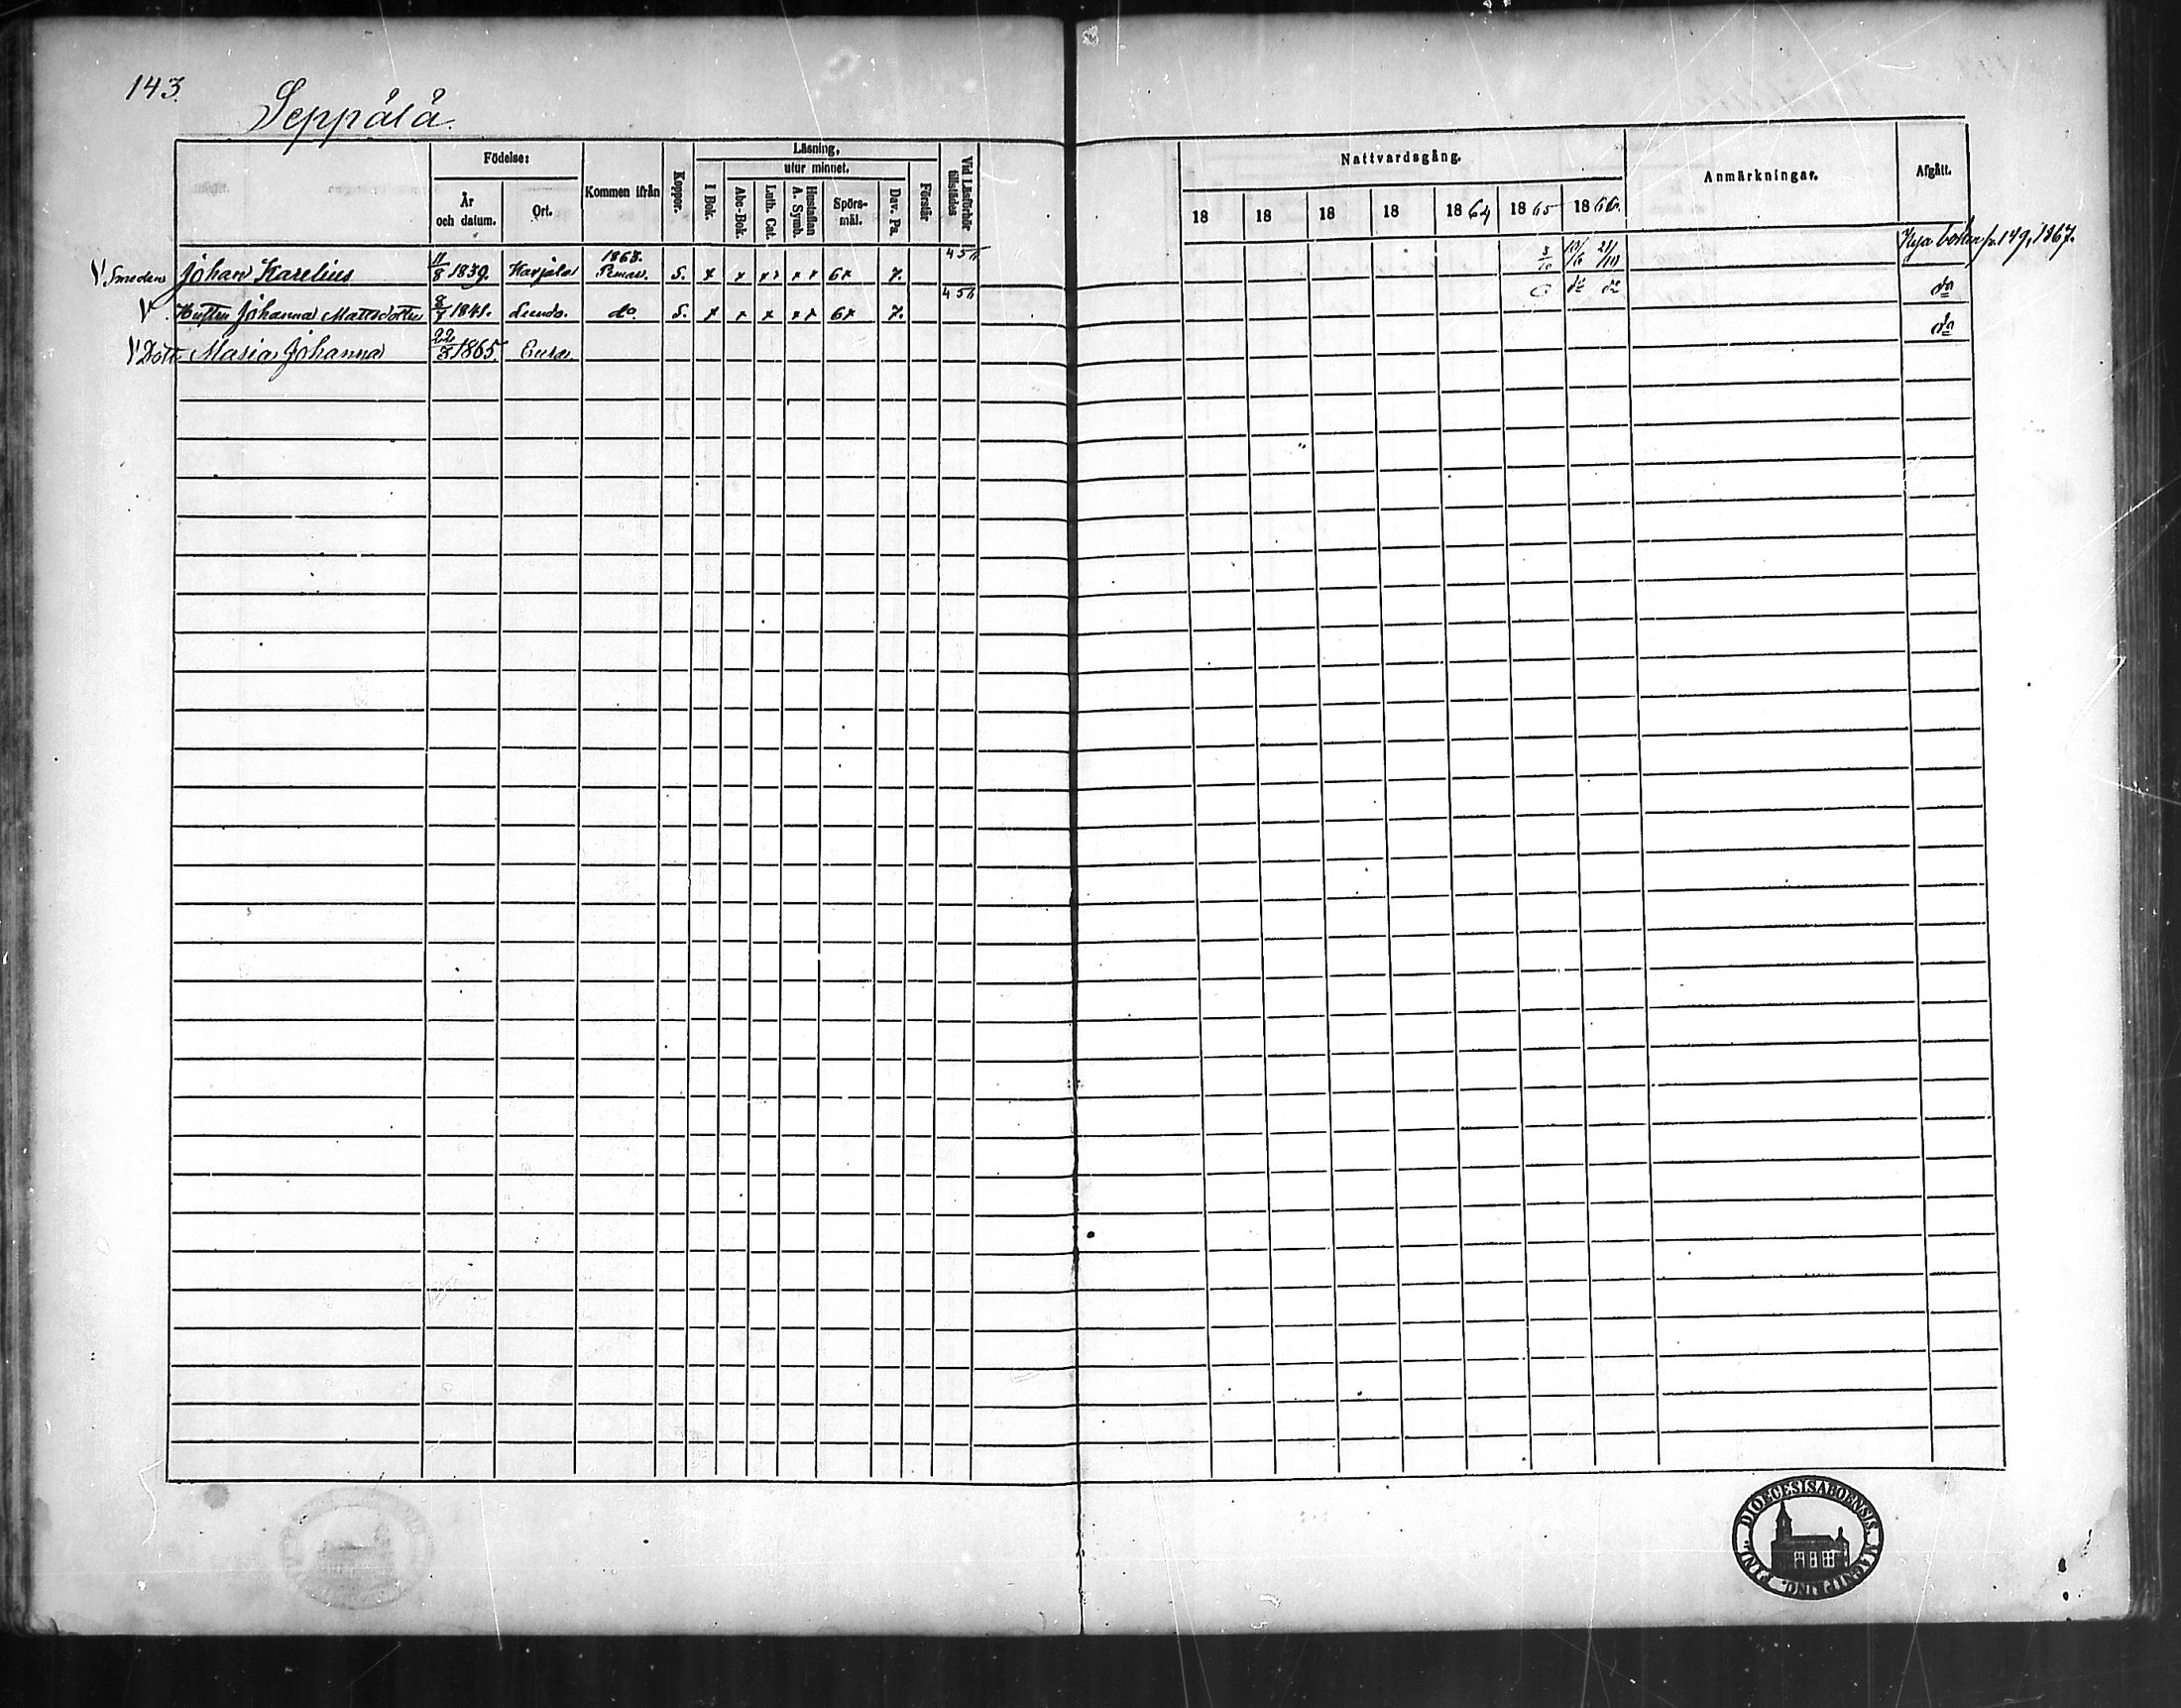 143.
Seppälä.
Födelse:
År och datum.
Ort.
Kommen ifrån
Koppor.
Läsning,
utur minnet.
I Bok.
Abc-Bok.
Luth. Cat.
Hustaflan A. Symb.
Spörs-mål.
Dav. Ps.
Förstår
Vid Läsförhör tillstädes
Nattvardsgång.
18 18 18 18 1864 1865 1866.
Anmärkningar.
Afgått.
Smeden Johan Karelius 11/8 1839. Karjala 1863. Pemar. S. x x x x x x 6x 7. 4 5 6 3/10 21/10 Nya boken p. 149, 1867.
Hustru Johanna Mattsdotter 8/7 1841. Lundo. do S. x x x x x 6x 7. 4 5 6 do do do
Dott. Maria Johanna 22/8 1865. Eura do
DIOECESIS ABOENSIS. MAGNI PRINC. FINL.